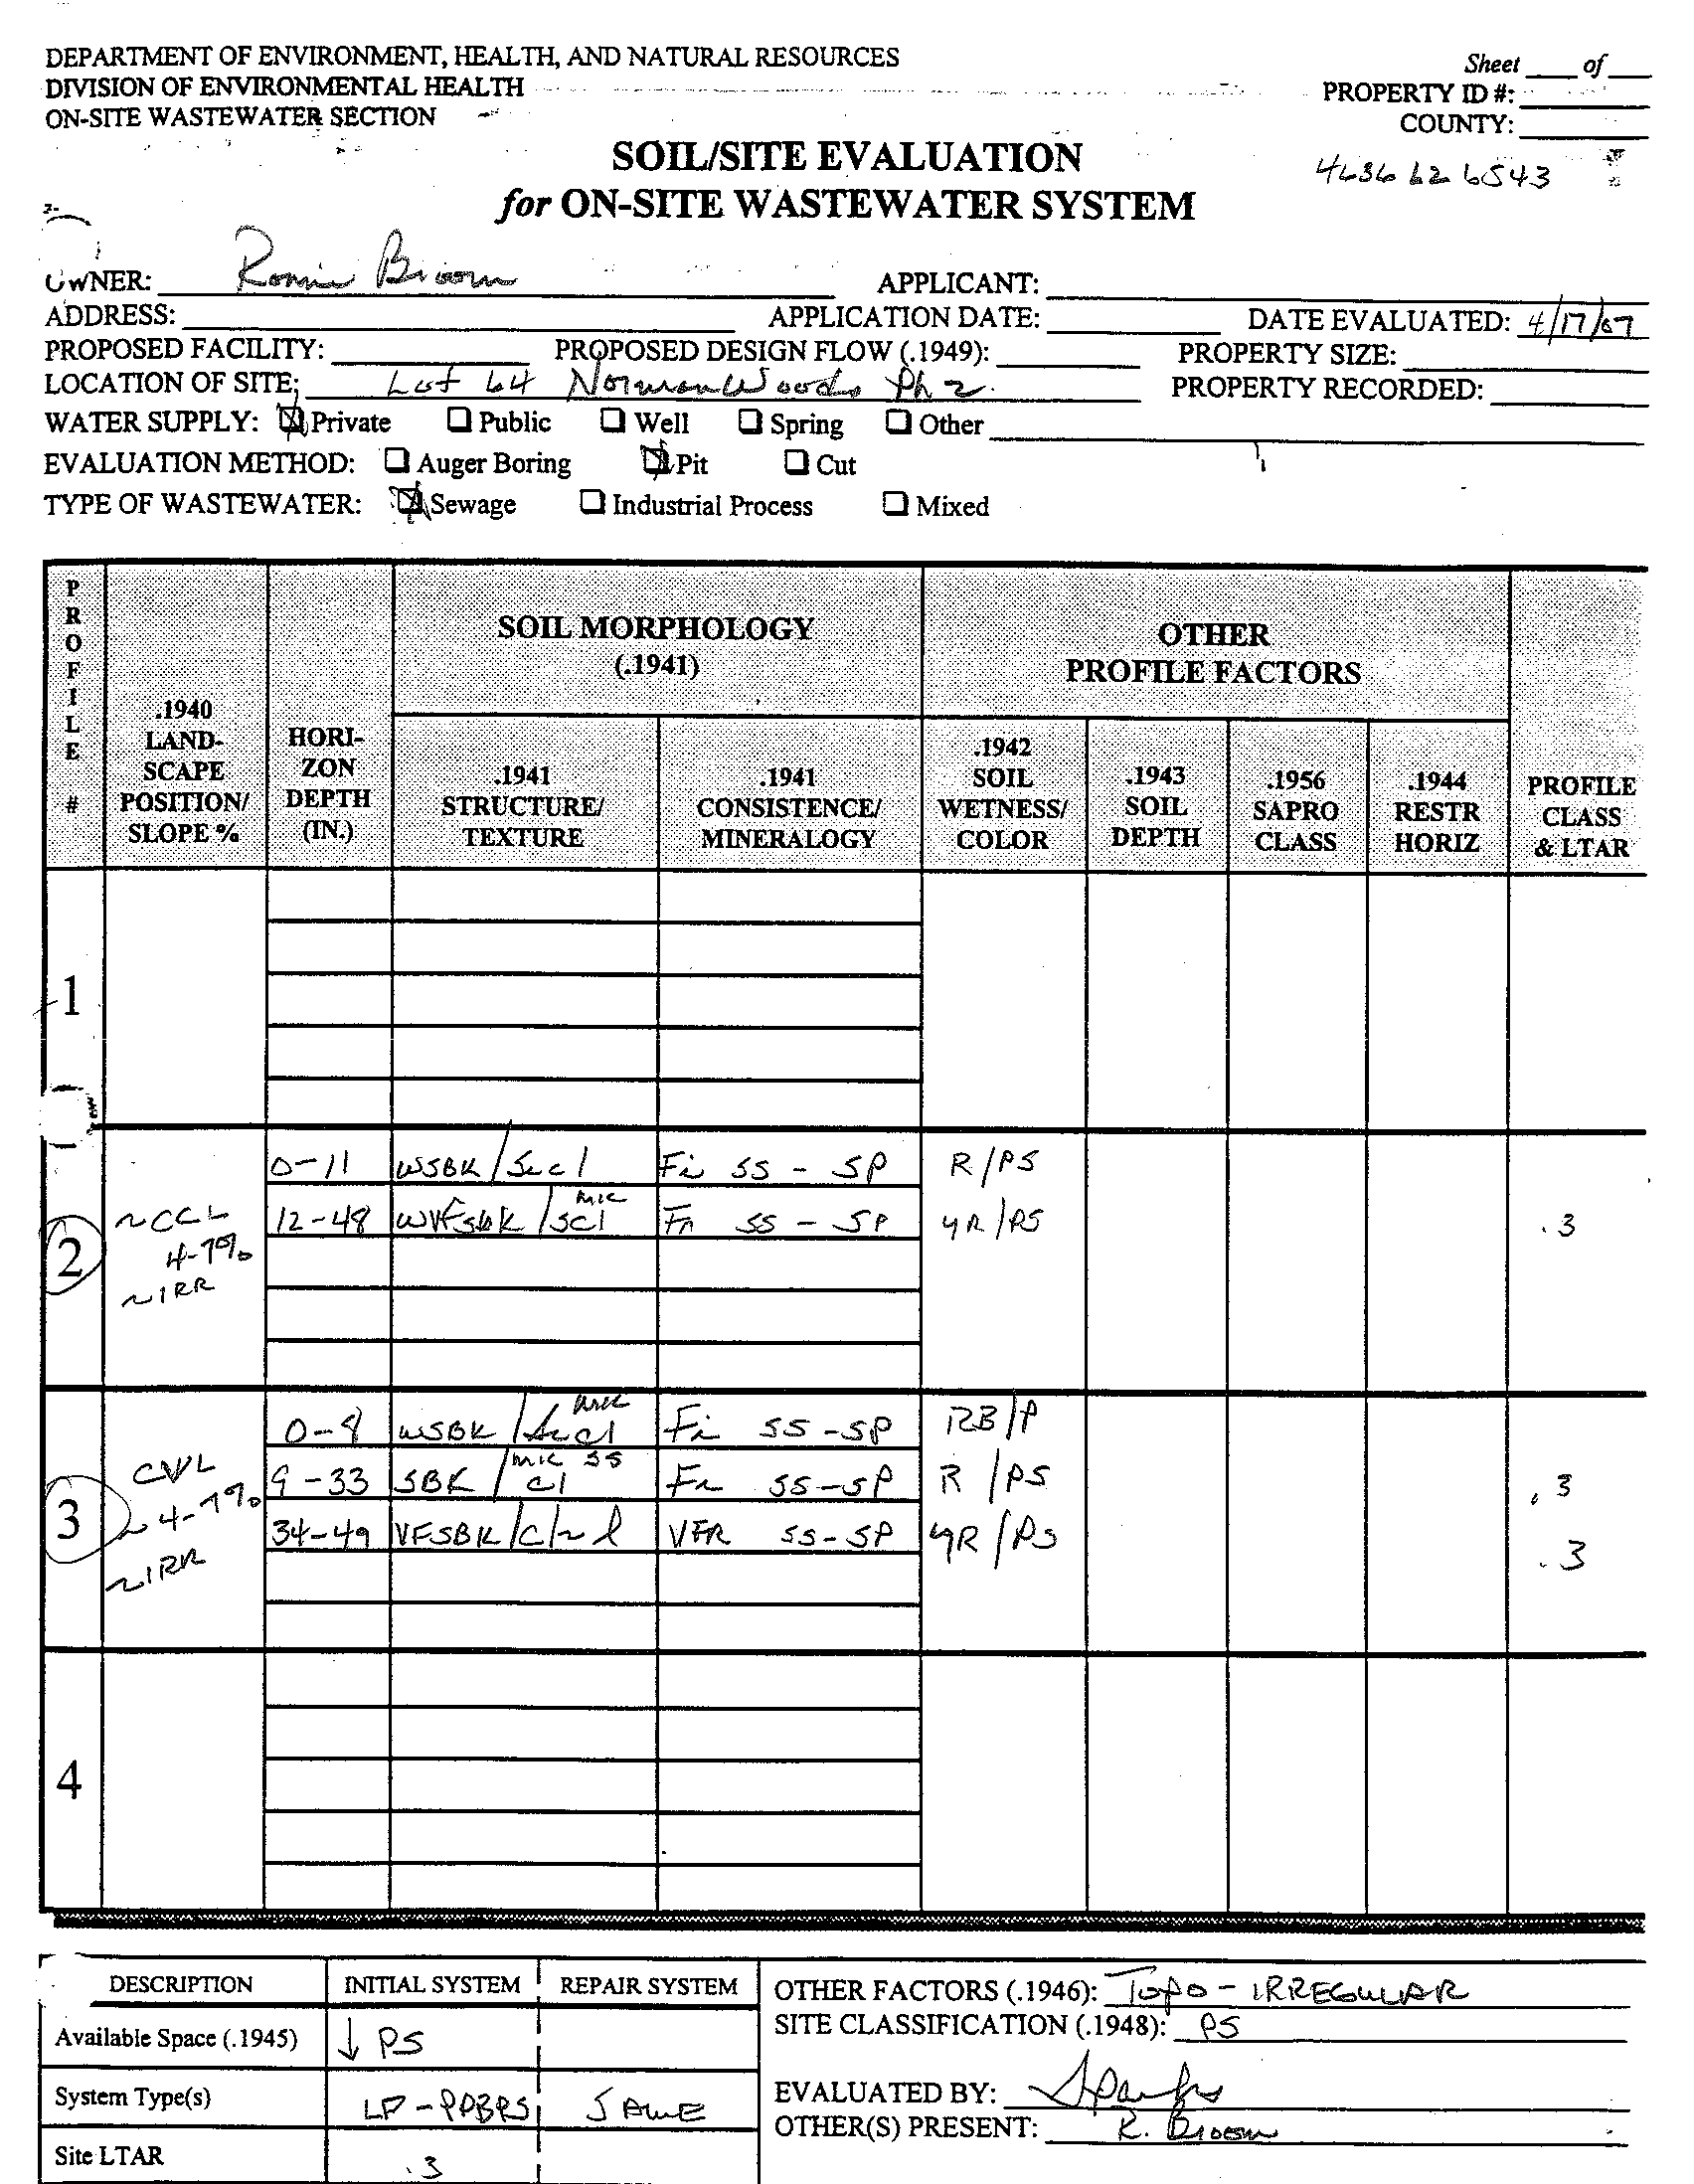 DEPARTMENT OF ENVIRONMENT, HEALTH, AND NATURAL RESOURCES
DIVISION OF ENVIRONMENTAL HEALTH
ON-SITE WASTEWATER SECTION
Sheet ___ of ___
PROPERTY ID #:
COUNTY:
SOIL/SITE EVALUATION
for ON-SITE WASTEWATER SYSTEM
4636 62 6543
OWNER: Ronnie Broom
APPLICANT:
ADDRESS: APPLICATION DATE: DATE EVALUATED: 4/17/07
PROPOSED FACILITY: PROPOSED DESIGN FLOW (.1949): PROPERTY SIZE:
LOCATION OF SITE: Lot 64 Norman Woods Ph 2. PROPERTY RECORDED:
WATER SUPPLY: Private Public Well Spring Other
EVALUATION METHOD: Auger Boring Pit Cut
TYPE OF WASTEWATER: Sewage Industrial Process Mixed
PROFILE #
.1940 LAND-SCAPE POSITION/ SLOPE %
HORI-ZON DEPTH (IN.)
SOIL MORPHOLOGY (.1941)
.1941 STRUCTURE/ TEXTURE
.1941 CONSISTENCE/ MINERALOGY
OTHER PROFILE FACTORS
.1942 SOIL WETNESS/ COLOR
.1943 SOIL DEPTH
.1956 SAPRO CLASS
.1944 RESTR HORIZ
PROFILE CLASS & LTAR
1
2
~CCL
4-7%
~IRR
0-11 WSBK / Fi SS - SP R/PS
12-48 WVFSBK / mic scl Fr SS - SP YR/PS .3
3
CVL
~4-7%
~IRR
WSBK / mic Fi SS-SP RB/P
9-33 SBK / mic ss cl Fr SS-SP R/PS .3
34-49 VFSBK / VFR SS-SP YR/PS .3
4
DESCRIPTION INITIAL SYSTEM REPAIR SYSTEM
Available Space (.1945) ↓ PS
System Type(s) LP-PPBPS SAME
Site LTAR .3
OTHER FACTORS (.1946): Topo - IRREGULAR
SITE CLASSIFICATION (.1948): PS
EVALUATED BY: Sparks
OTHER(S) PRESENT: R. Broom